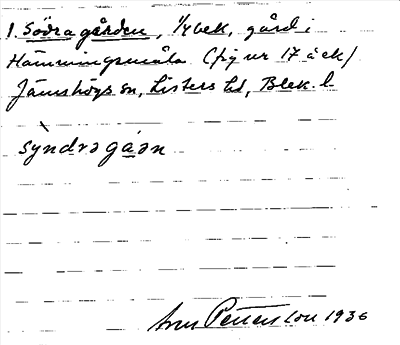 1. Södra gården, 1/4 bek, gård i
Hämmingsmåla (fig nr 17 å ek)
Jämshögs sn, Listers hd, Blek. l
syndrə gå̱ən
Pettersson 1936